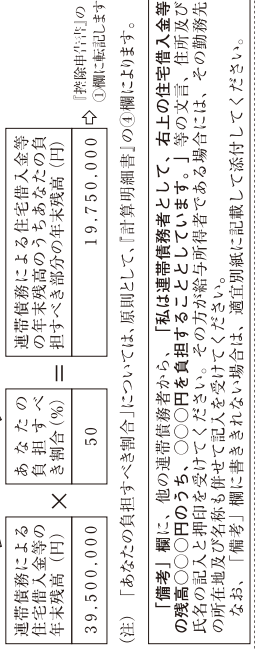 連帯債務による
住宅借入金等の
年末残高（円）
39,500,000
×
あなたの
負担すべ
き割合(%)
50
＝
連帯債務による住宅借入金等
の年末残高のうちあなたの負
担すべき部分の年末残高（円）
19,750,000
⇨
『控除申告書』の
①欄に転記します
(注)　「あなたの負担すべき割合」については、原則として、『計算明細書』の④欄によります。
「備考」欄に、他の連帯債務者から、「私は連帯債務者として、右上の住宅借入金等
の残高○○○円のうち、○○○円を負担することとしています。」等の文言、住所及び
氏名の記入と押印を受けてください。その方が給与所得者である場合には、その勤務先
の所在地及び名称も併せて記入を受けてください。
なお、「備考」欄に書ききれない場合は、適宜別紙に記載して添付してください。